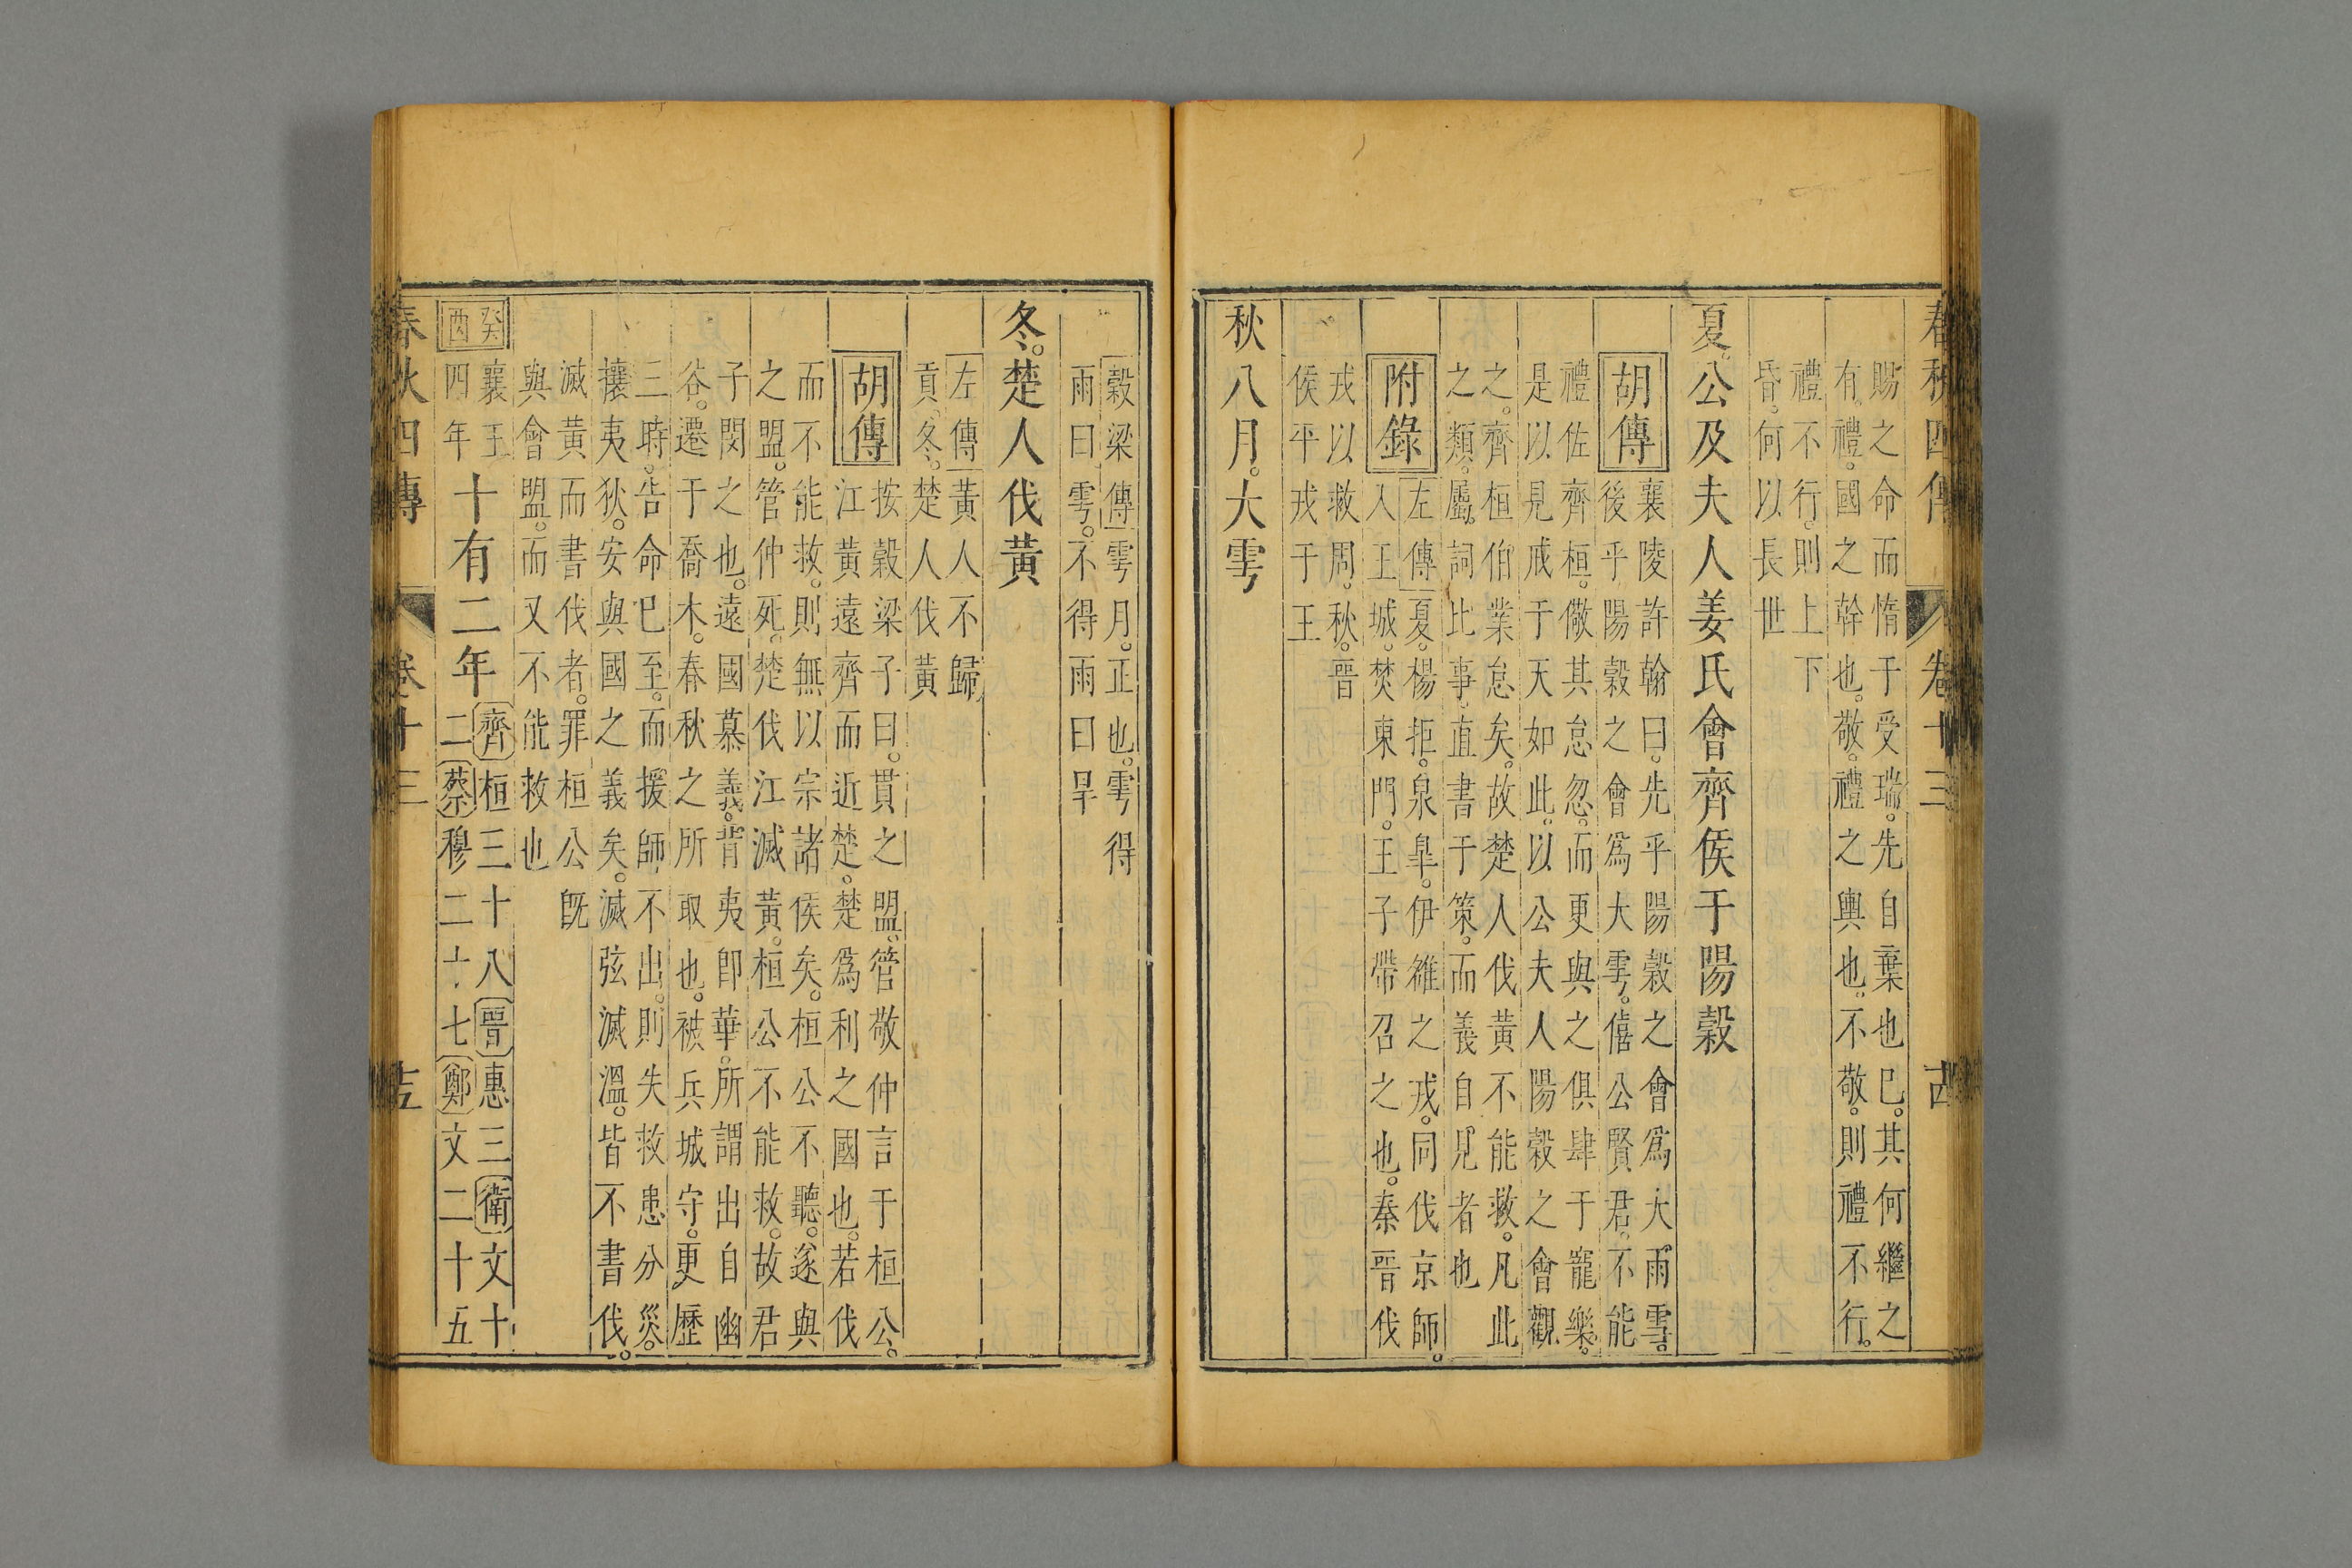 春秋四傳 卷十三 古
賜之命而惰于受瑞。先自棄也已。其何繼之
有。禮。國之幹也。敬。禮之輿也。不敬。則禮不行。
禮不行。則上下
昏。何以長世
夏。公及夫人姜氏會齊侯于陽穀
胡傳
襄陵許翰曰。先乎陽穀之會爲大雨雪。
後乎陽穀之會爲大雩。僖公賢君。不能
禮佐齊桓。儆其怠忽。而更與之俱肆于寵樂。
是以見戒于天如此。以公夫人陽穀之會觀
之。齊桓伯業怠矣。故楚人伐黃不能救。凡此
之類。屬詞比事。直書于策。而義自見者也
附錄
左傳夏。楊拒。泉臯。伊雒之戎。同伐京師。
入王城。焚東門。王子帶召之也。秦晉伐
戎以救周。秋。晉
侯平戎于王
秋八月。大雩
穀梁傳雩月。正也。雩得
雨曰雩。不得雨曰旱
冬。楚人伐黃
左傳黃人不歸
貢。冬。楚人伐黃
胡傳
按穀梁子曰。貫之盟。管敬仲言于桓公。
江黃遠齊而近楚。楚爲利之國也。若伐
而不能救。則無以宗諸侯矣。桓公不聽。遂與
之盟。管仲死。楚伐江滅黃。桓公不能救。故君
子閔之也。遠國慕義。背夷卽華。所謂出自幽
谷。遷于喬木。春秋之所取也。被兵城守。更歷
三時。告命已至。而援師不出。則失救患分災。
攘夷狄。安與國之義矣。滅弦滅溫。皆不書伐。
滅黃而書伐者。罪桓公旣
與會盟。而又不能救也
癸酉
襄王
四年
十有二年
齊桓三十八晉惠三衛文十
二蔡穆二十七鄭文二十五
春秋四傳 卷十三 十五